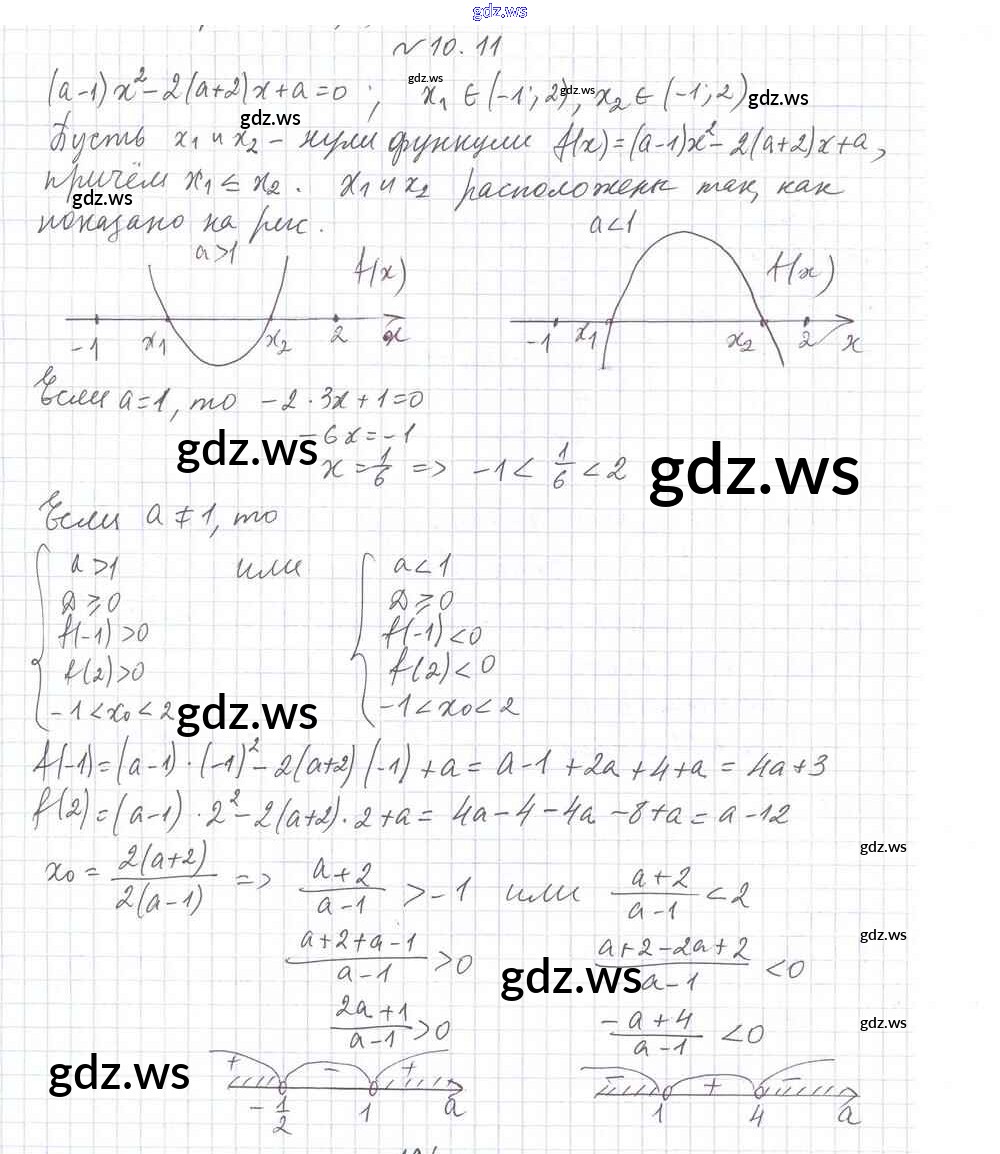 gdz.ws
№ 10.11
gdz.ws
(a-1)x²-2(a+2)x+a=0; x₁ ∈ (-1; 2), x₂ ∈ (-1; 2) gdz.ws
gdz.ws
Пусть x₁ и x₂ - нули функции f(x)=(a-1)x²-2(a+2)x+a,
причём x₁ ≤ x₂. x₁ и x₂ расположены так, как
gdz.ws
показано на рис.
a>1 a<1
f(x) f(x)
-1 x₁ x₂ 2 x -1 x₁ x₂ 2 x
Если a=1, то -2·3x+1=0
-6x=-1
gdz.ws
x=1/6 => -1< 1/6 <2
gdz.ws
Если a≠1, то
a>1 или a<1
D≥0 D≥0
f(-1)>0 f(-1)<0
f(2)>0 f(2)<0
-1<x₀<2 -1<x₀<2
gdz.ws
f(-1)=(a-1)·(-1)²-2(a+2)(-1)+a= a-1+2a+4+a=4a+3
f(2)=(a-1)·2²-2(a+2)·2+a= 4a-4-4a-8+a=a-12
gdz.ws
x₀ = 2(a+2)/2(a-1) => a+2/a-1 >-1 или a+2/a-1 <2
gdz.ws
a+2+a-1/a-1 >0 a+2-2a+2/a-1 <0
gdz.ws
2a+1/a-1 >0 -a+4/a-1 <0
gdz.ws
gdz.ws
+ - + - + -
-1/2 1 a 1 4 a